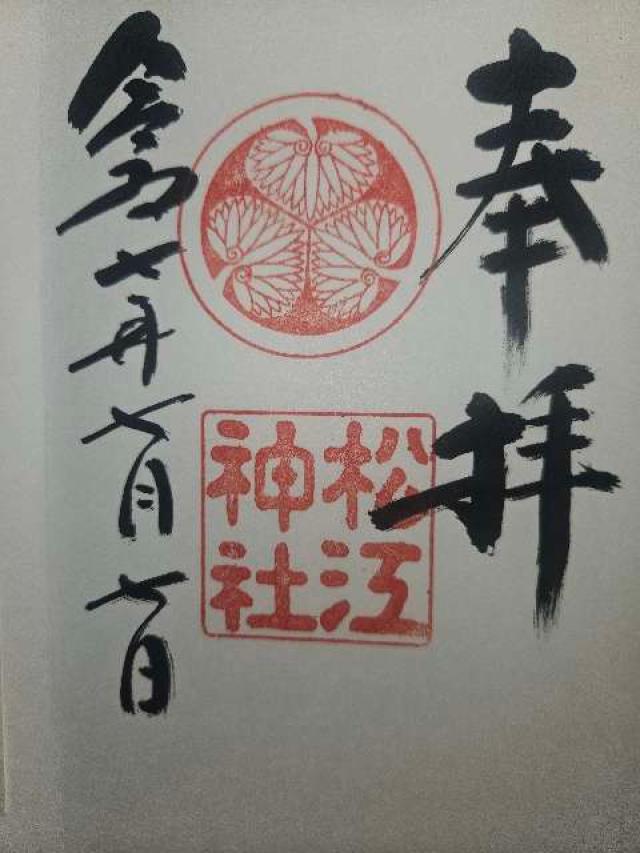 奉拝
松江
神社
令和七年七月七日